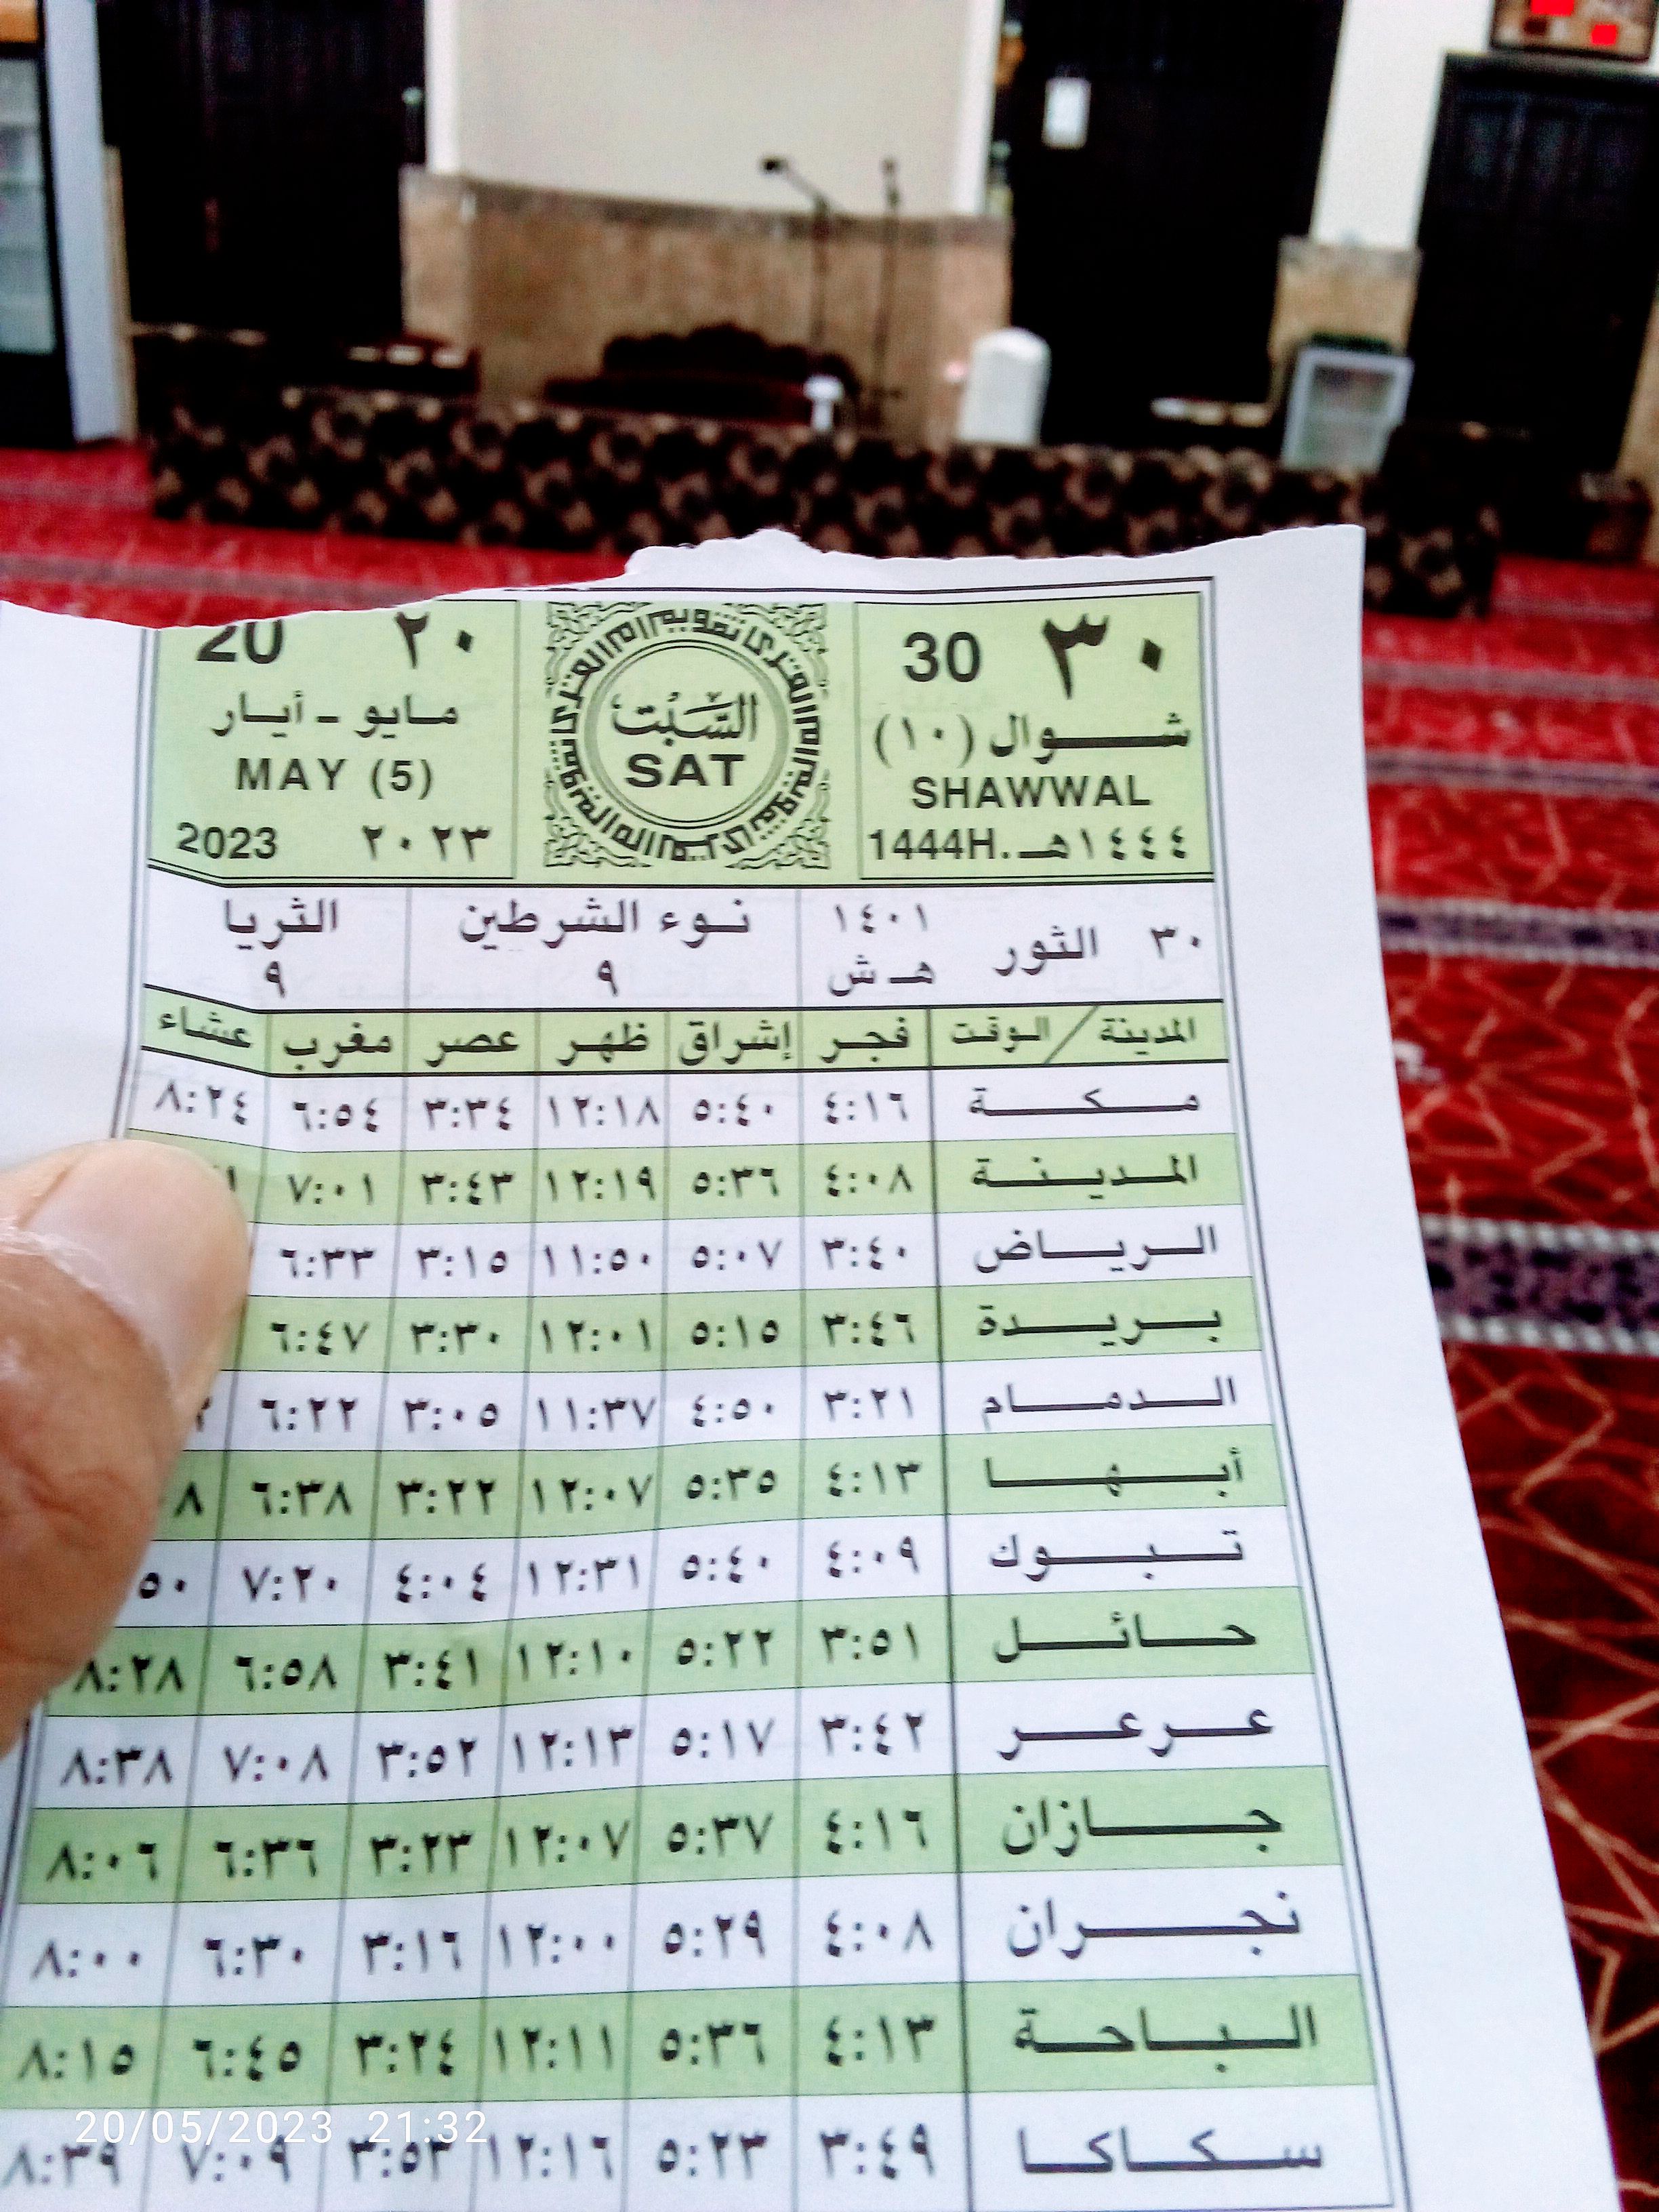 ٣٠ 30
شوال (١٠)
SHAWWAL
١٤٤٤هـ 1444H.
السَّبْت
SAT
٢٠ 20
مايو - أيار
MAY (5)
٢٠٢٣ 2023
٣٠ الثور ١٤٠١ هـ ش نوء الشرطين ٩ الثريا ٩
المدينة / الوقت فجر إشراق ظهر عصر مغرب عشاء
مكة ٤:١٦ ٥:٤٠ ١٢:١٨ ٣:٣٤ ٦:٥٤ ٨:٢٤
المدينة ٤:٠٨ ٥:٣٦ ١٢:١٩ ٣:٤٣ ٧:٠١
الرياض ٣:٤٠ ٥:٠٧ ١١:٥٠ ٣:١٥ ٦:٣٣
بريدة ٣:٤٦ ٥:١٥ ١٢:٠١ ٣:٣٠ ٦:٤٧
الدمام ٣:٢١ ٤:٥٠ ١١:٣٧ ٣:٠٥ ٦:٢٢
أبها ٤:١٣ ٥:٣٥ ١٢:٠٧ ٣:٢٢ ٦:٣٨
تبوك ٤:٠٩ ٥:٤٠ ١٢:٣١ ٤:٠٤ ٧:٢٠ ٥٠
حائل ٣:٥١ ٥:٢٢ ١٢:١٠ ٣:٤١ ٦:٥٨ ٨:٢٨
عرعر ٣:٤٢ ٥:١٧ ١٢:١٣ ٣:٥٢ ٧:٠٨ ٨:٣٨
جازان ٤:١٦ ٥:٣٧ ١٢:٠٧ ٣:٢٣ ٦:٣٦ ٨:٠٦
نجران ٤:٠٨ ٥:٢٩ ١٢:٠٠ ٣:١٦ ٦:٣٠ ٨:٠٠
الباحة ٤:١٣ ٥:٣٦ ١٢:١١ ٣:٢٤ ٦:٤٥ ٨:١٥
سكاكا ٣:٤٩ ٥:٢٣ ١٢:١٦ ٣:٥٣ ٧:٠٩ ٨:٣٩
20/05/2023 21:32